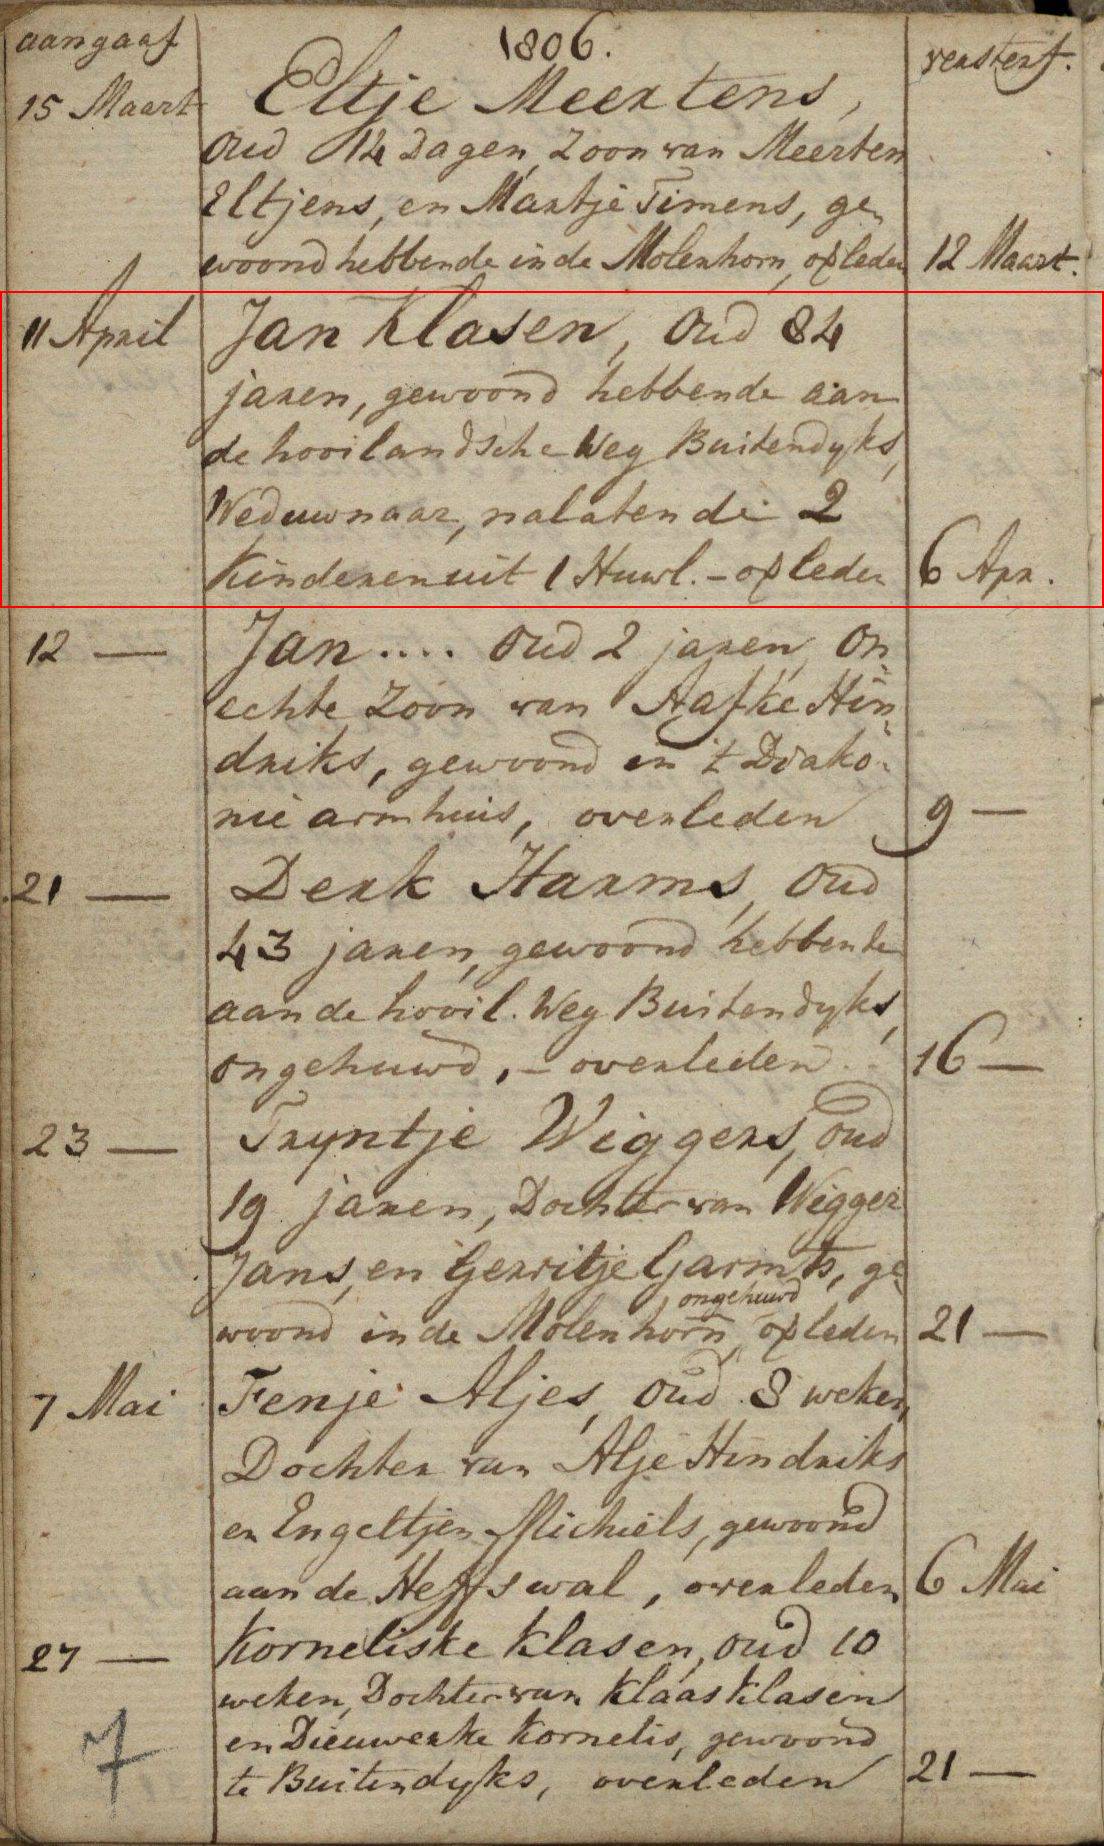 aangaaf
1806.
versterf.
15 Maart
Eltje Meertens,
oud 14 Dagen, Zoon van Meerten
Eltjens, en Martje Timens, ge„
woond hebbende in de Molenhorn, opleden
12 Maart.
11 April
Jan Klasen, oud 84
jaren, gewoond hebbende aan
de hooilandsche Weg Buitendyks,
Weduwnaar, nalatende 2
Kinderen uit 1 Huwl. – opleden
6 Apr.
12 —
Jan .... oud 2 jaren, On„
echte Zoon van Aafke Hin„
driks, gewoond in 't Diako„
nie armhuis, overleden
9 —
21 —
Derk Harms, oud
43 jaren, gewoond hebbende
aan de hooil. Weg Buitendyks,
ongehuwd, – overleden
16 —
23 —
Tryntje Wiggers, oud
19 jaren, Dochter van Wigger
Jans, en Gerritje Garmts, ge„
ongehuwd
woond in de Molenhorn, opleden
21 —
7 Mai
Fenje Aljes, oud 8 weken,
Dochter van Alje Hindriks
en Engeltjen Michiels, gewoond
aan de Heffswal, overleden
6 Mai
27 —
Korneliske Klasen, oud 10
weken, Dochter van Klaas Klasen
en Dieuwerke Kornelis, gewoond
te Buitendyks, overleden
21 —
7